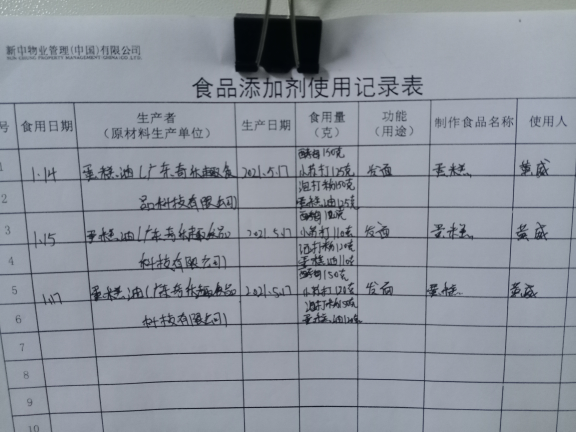 新中物业管理(中国)有限公司
SUN CHUNG PROPERTY MANAGEMENT (CHINA) CO.,LTD.
食品添加剂使用记录表
号 食用日期 生产者（原材料生产单位） 生产日期 食用量（克） 功能（用途） 制作食品名称 使用人
1 1.14 蛋糕油(广东奇乐趣食 2021.5.17 酵母150克 发面 蛋糕 黄威
小苏打125克
2 品科技有限公司) 泡打粉150克
蛋糕油125克
3 1.15 蛋糕油(广东奇乐趣食品 2021.5.17 小苏打110克 发面 蛋糕 黄威
4 科技有限公司) 泡打粉120克
蛋糕油110克
5 1.17 蛋糕油(广东奇乐趣食品 2021.5.17 酵母150克 发面 蛋糕 黄威
小苏打120克
6 科技有限公司) 泡打粉150克
蛋糕油120克
7
8
9
10